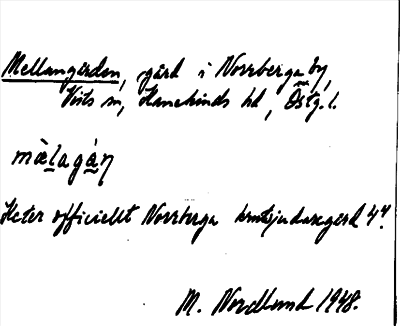 Mellangården, gård i Norrberga by,
Vists sn, Hanekinds hd, Östg. l.
mæ̀lagá̱ṉ
Heter officiellt Norrberga 4⁴.
M. Nordlund 1948.